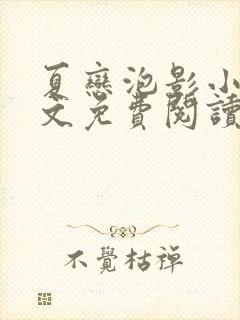 夏戀泡影小
文免費閱讀
不覺枯禪